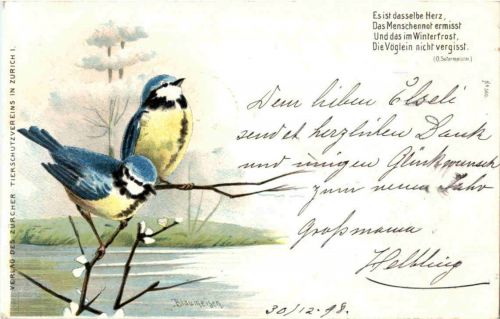 Es ist dasselbe Herz,
Das Menschennot ermisst
Und das im Winterfrost,
Die Vöglein nicht vergisst.
(O. Sutermeister.)
Dem lieben Elseli
sendet herzlichen Dank
und innigen Glückwunsch
zum neuen Jahr
Großmama
Helbling
30/12.98.
Blaumeisen
VERLAG DES ZÜRCHER TIERSCHUTZVEREINS IN ZÜRICH I.